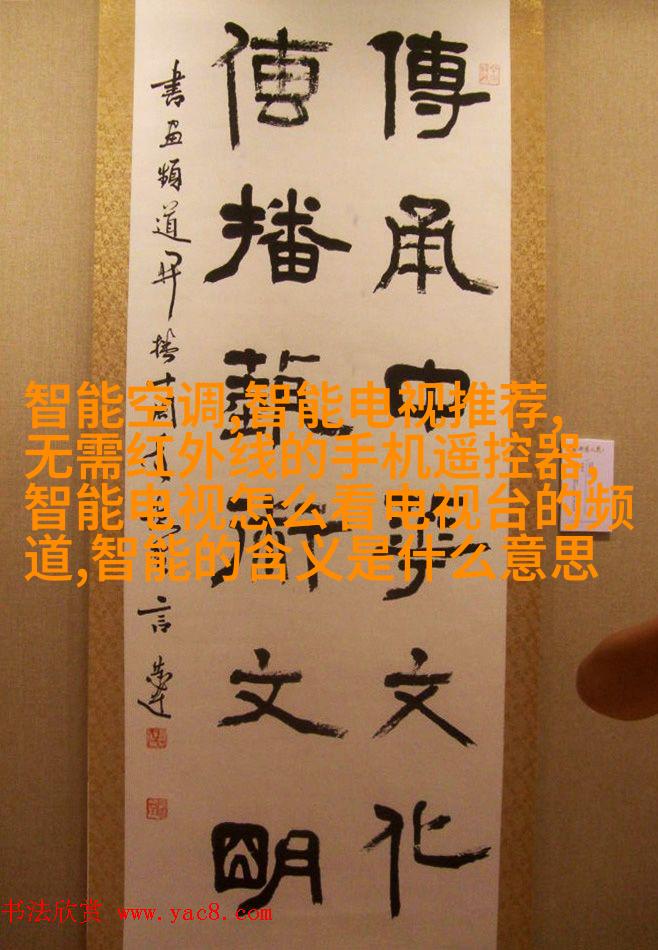 傳承中華文化
傳播藝術文明
書画頻道开播十周
言恭達
智能空调,智能电视推荐,
无需红外线的手机遥控器,
智能电视怎么看电视台的频
道,智能的含义是什么意思
书法欣赏 www.yac8.com